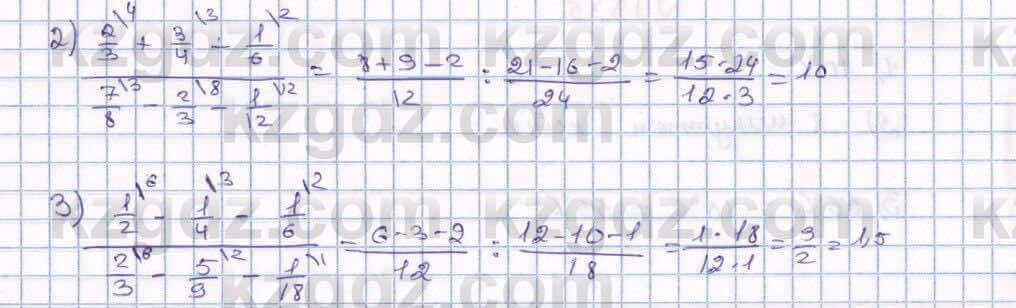 2) (2/3\4 + 3/4\3 - 1/6\2) / (7/8\3 - 2/3\8 - 1/12\2) = (8+9-2)/12 : (21-16-2)/24 = (15·24)/(12·3) = 10
kzgdz.com
kzgdz.com
3) (1/2\6 - 1/4\3 - 1/6\2) / (2/3\6 - 5/9\2 - 1/18\1) = (6-3-2)/12 : (12-10-1)/18 = (1·18)/(12·1) = 9/2 = 1,5
kzgdz.com
kzgdz.com